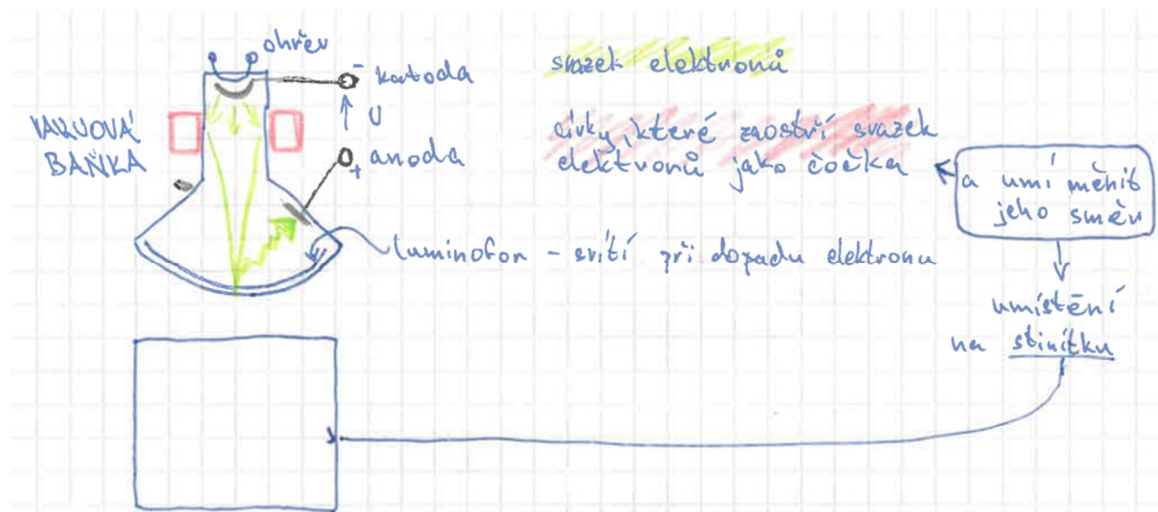 ohřev
- katoda
U
+ anoda
VAKUOVÁ
BAŇKA
svazek elektronů
cívky, které zaostří svazek
elektronů jako čočka
a umí měnit
jeho směr
luminofor - svítí při dopadu elektronu
umístění
na stínítku